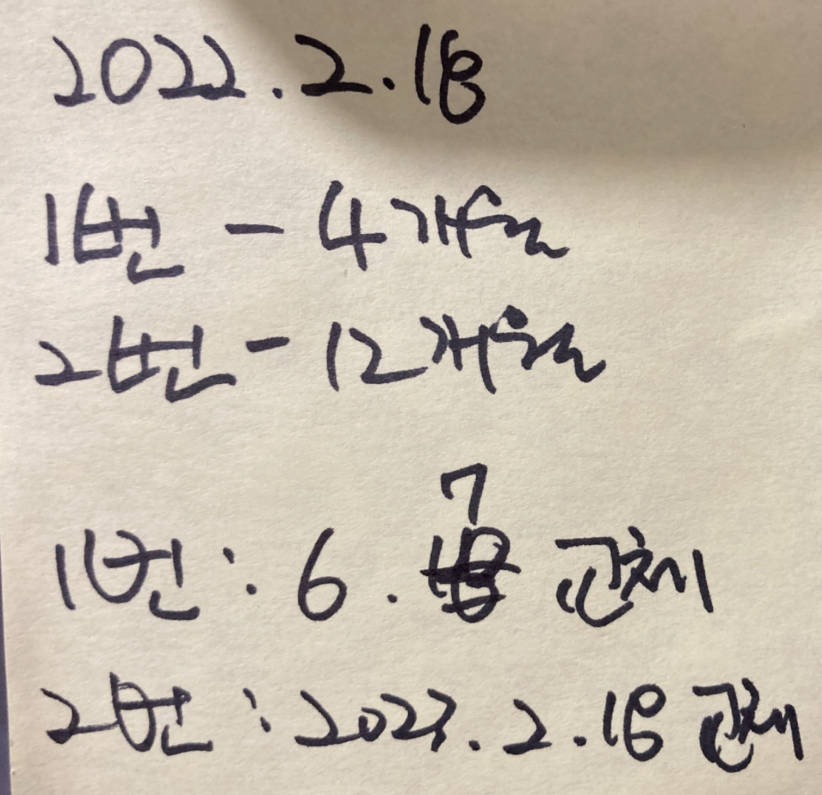 2022.2.18
1번 - 4개월
2번 - 12개월
1번 : 6.7 교체
2번 : 2023.2.18 교체